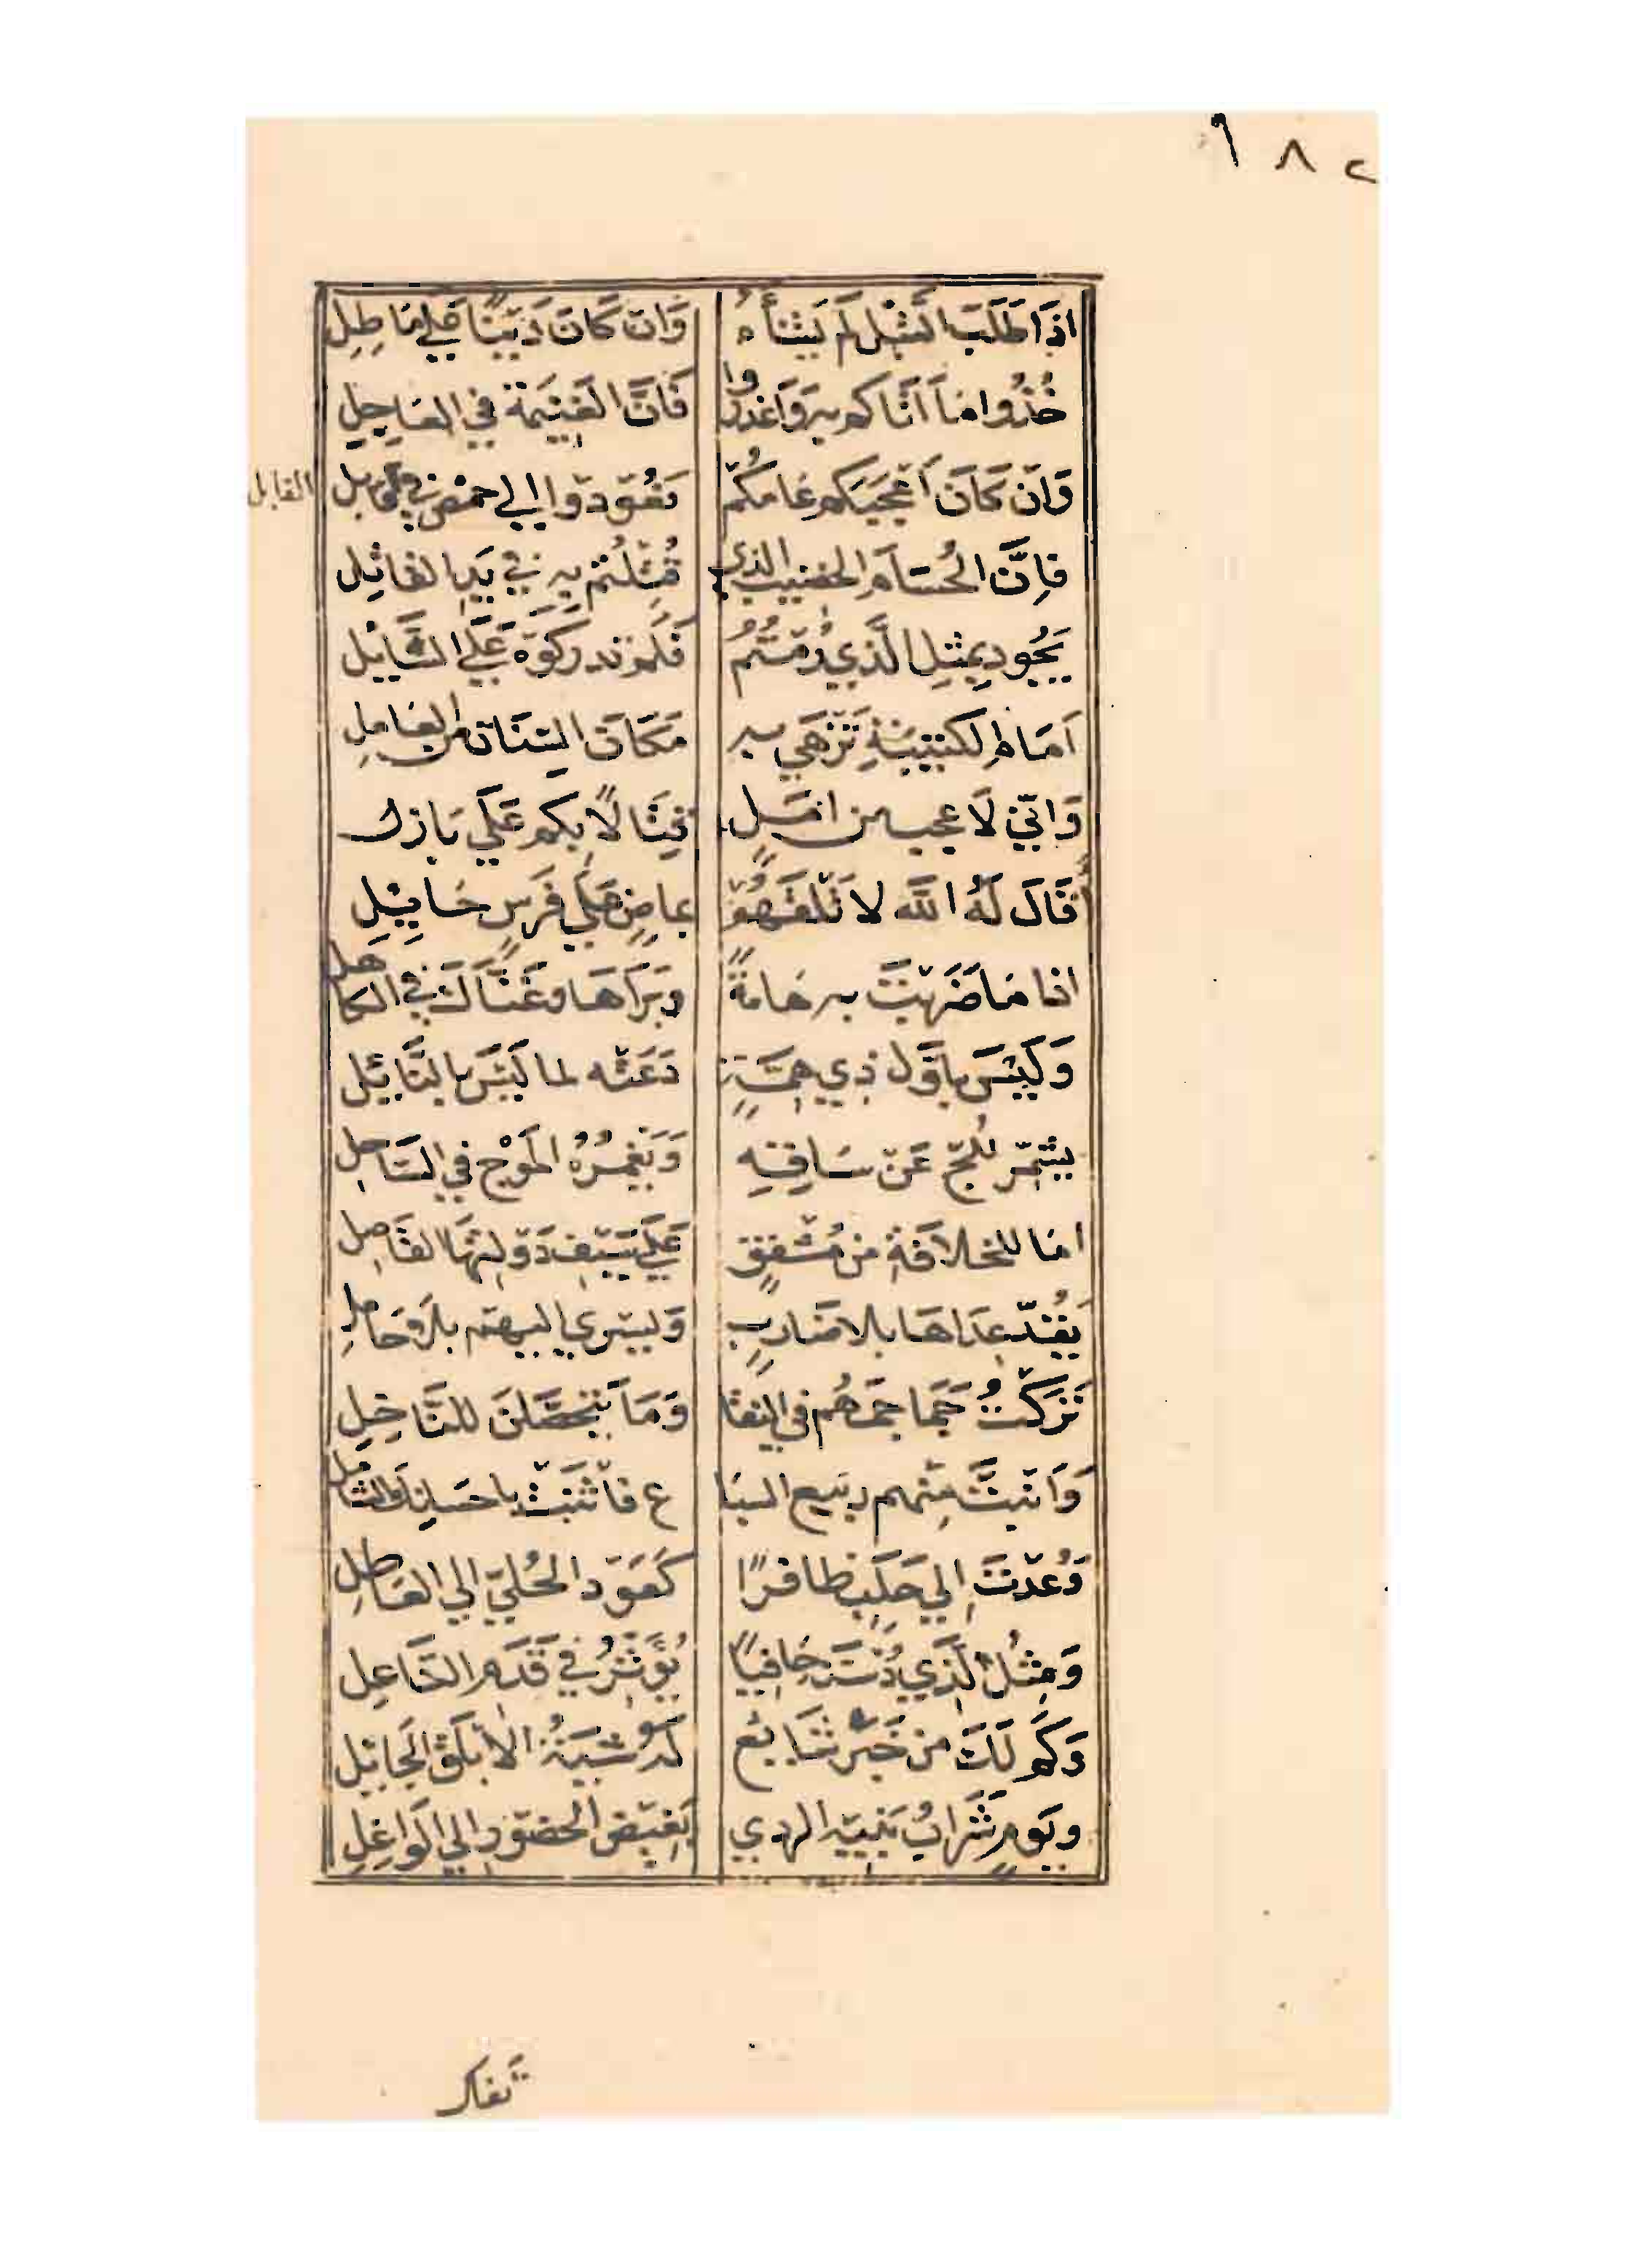 ٢ ٨ ٩
اذَا طَلَبَ التَّبْلَ لَمْ يَشْأَهُ وَان كَانَ دَيْنًا عَلي مَاطِلِ
خُذُوا مَا اَتَاكم بِهِ وَاعْذروا فَانَّ الغَنِيمَةَ فِي العَاجِلِ
وَان كَانَ اَعْجَبَكم عَامكُمْ تعُودُوا الي حمْصَ في قابل
القابل
فَاِنَّ الحُسَامَ الخضيبَ الذي قُتِلْتُمْ بِهِ في يَدِ القَاتِلِ
يَجُود بِمِثلِ الَّذِي رُمْتُمُ فَلَم تدركُوهُ عَلَي السَّائِلِ
اَمَام الكَتِيبَةِ تُزْهَي بهِ مَكَانَ السّنَانِ مِنَ العَامِلِ
وَانّي لَاعجب من امل قِتَالًا بِكم عَلَي بَازل
قَالَ لَهُ اللَّه لا تَلقَهُمْ بماضٍ عَلَي فَرَسٍ حَايِلِ
اذا مَا ضَرَبْتَ به هَامةً وبَرَاهَا وغَنَّاكَ في الكَاهل
وَلَيْسَ باَوَّل ذِي هِمَّةٍ دَعَتْه لما لَيْسَ بالنَّائِلِ
يشَمِّر لِلُّجّ عَنْ سَاقِهِ وَيَغْمُرُهُ المَوْج فِي السَّاحِلِ
امَا للخلاَفَةِ من مُشْفِقٍ عَلَي سَيْفِ دَوْلَتِهَا الفَاصِلِ
يَقُدّ عِدَاهَا بلا ضَاربٍ وَيَسْري اليهم بلا حَامِلِ
تَرَكْتُ جَمَاجمَهُم في النقَا وَمَا يَتَحَصَّلنَ للنَّاخِلِ
وَانبَتَّ مِنْهم ربيع السبَا ع فاثنَتْ باحسانك الشامل
وَعُدْتَ اِلي حَلَبٍ ظافرًا كَعَوْد الحُلِيّ الي العَاطِلِ
وَمِثْلُ الَّذِي دُسْتَ حَافِيًا يُؤَثّرُ فِي قَدَمِ النَّاعِلِ
وَكَم لَكَ من خَبَرٍ شَايع لَهُ شِيَةُ الاَبْلَقِ الجَائِلِ
ويَومٍ شَرَابُ بَنيهِ الردي بَغيضِ الحضُورِ الي الوَاغِلِ
تفك